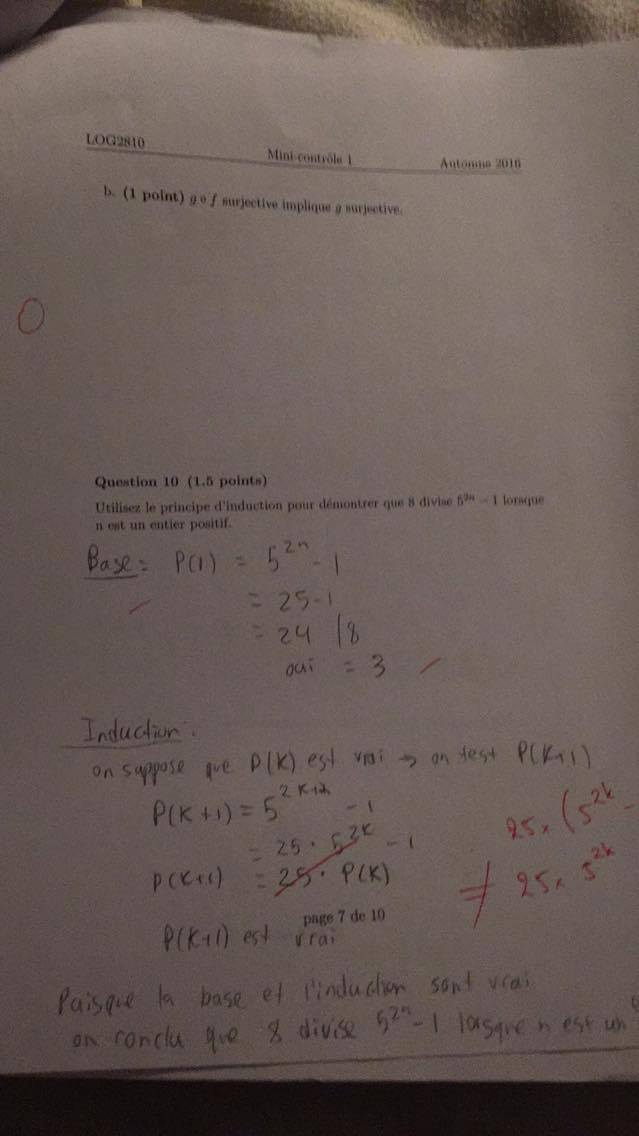 LOG2810 Mini-contrôle 1 Automne 2016
b. (1 point) g ∘ f surjective implique g surjective.
0
Question 10 (1.5 points)
Utilisez le principe d'induction pour démontrer que 8 divise 5²ⁿ − 1 lorsque
n est un entier positif.
Base = P(1) = 5²ⁿ - 1
= 25-1
= 24 |8
oui = 3
Induction:
on suppose que P(K) est vrai → on test P(K+1)
P(K+1) = 5²ᴷ⁺² - 1
= 25 · 5²ᴷ - 1
25 × (5²ᵏ -
P(K+1) = 25 · P(K)
≠ 25 × 5²ᵏ
page 7 de 10
P(K+1) est vrai
Puisque la base et l'induction sont vrai
on conclu que 8 divise 5²ⁿ - 1 lorsque n est un